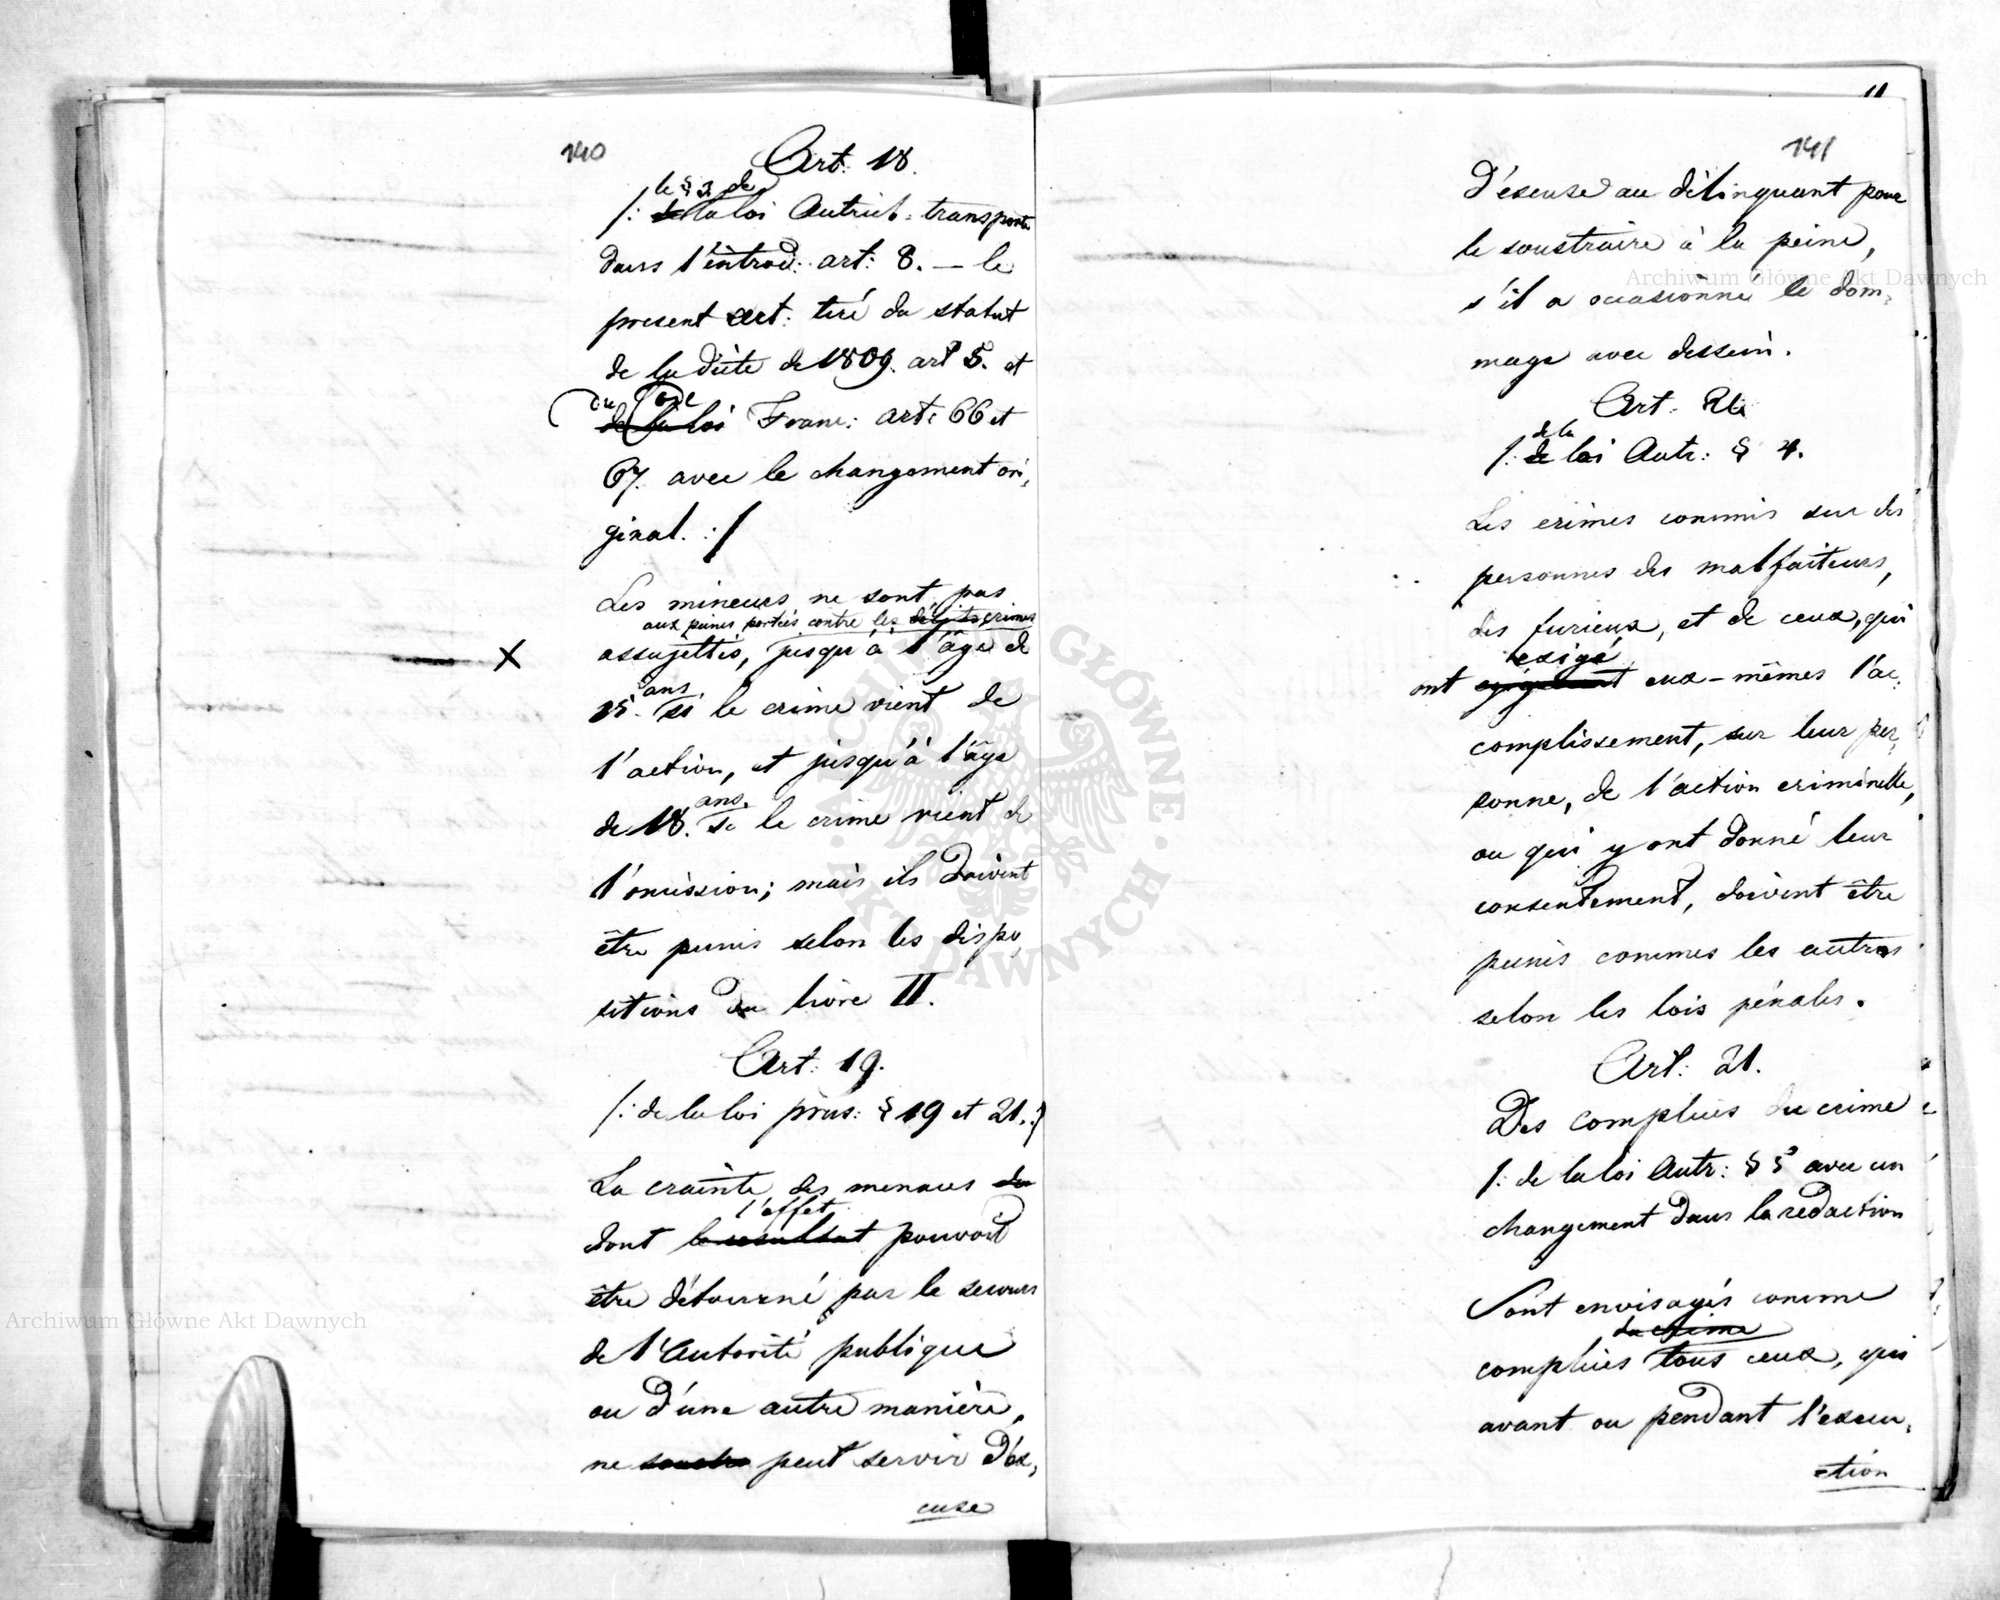 140
Art: 18.
le § 3 de
/: de la loi Autrich: transporté
dans l'introd: art: 8. — le
present art: tiré du statut
de la diète de 1809. art 5. et
du Code
de la loi Franc: art: 66 et
67. avec le changement ori,
ginal. :/
Les mineurs ne sont pas
aux peines portées contre les délits crimes
X assujettis, jusqu'à l'âge de
ans
15. si le crime vient de
l'action, et jusqu'à l'âge
ans.
de 18. si le crime vient de
l'omission; mais ils doivent
être punis selon les dispo,
sitions du livre II.
Art: 19.
/: de la loi prus: § 19 et 21. :/
La crainte des menaces de
l'effet
dont le resultat pouvoit
être détourné par le secours
de l'Autorité publique
ou d'une autre manière,
ne peut servir d'ex,
cuse
11
141
d'excuse au délinquant pour
le soustraire à la peine,
s'il a occasionné le dom,
mage avec dessein.
Art:
de la
/: de loi Autr: § 4.
Les crimes commis sur des
personnes des malfaiteurs,
des furieux, et de ceux, qui
exigé
ont eux-mêmes l'ac,
complissement, sur leur per,
sonne, de l'action criminelle,
ou qui y ont donné leur
consentement, doivent être
punis commes les autres
selon les lois pénales.
Art: 21.
Des complices du crime
/: de la loi Autr: § 5 avec un
changement dans la redaction
Sont envisagés comme
du crime
complices tous ceux, qui
avant ou pendant l'execu,
ction
Archiwum Główne Akt Dawnych
Archiwum Główne Akt Dawnych
ARCHIWUM GŁÓWNE AKT DAWNYCH